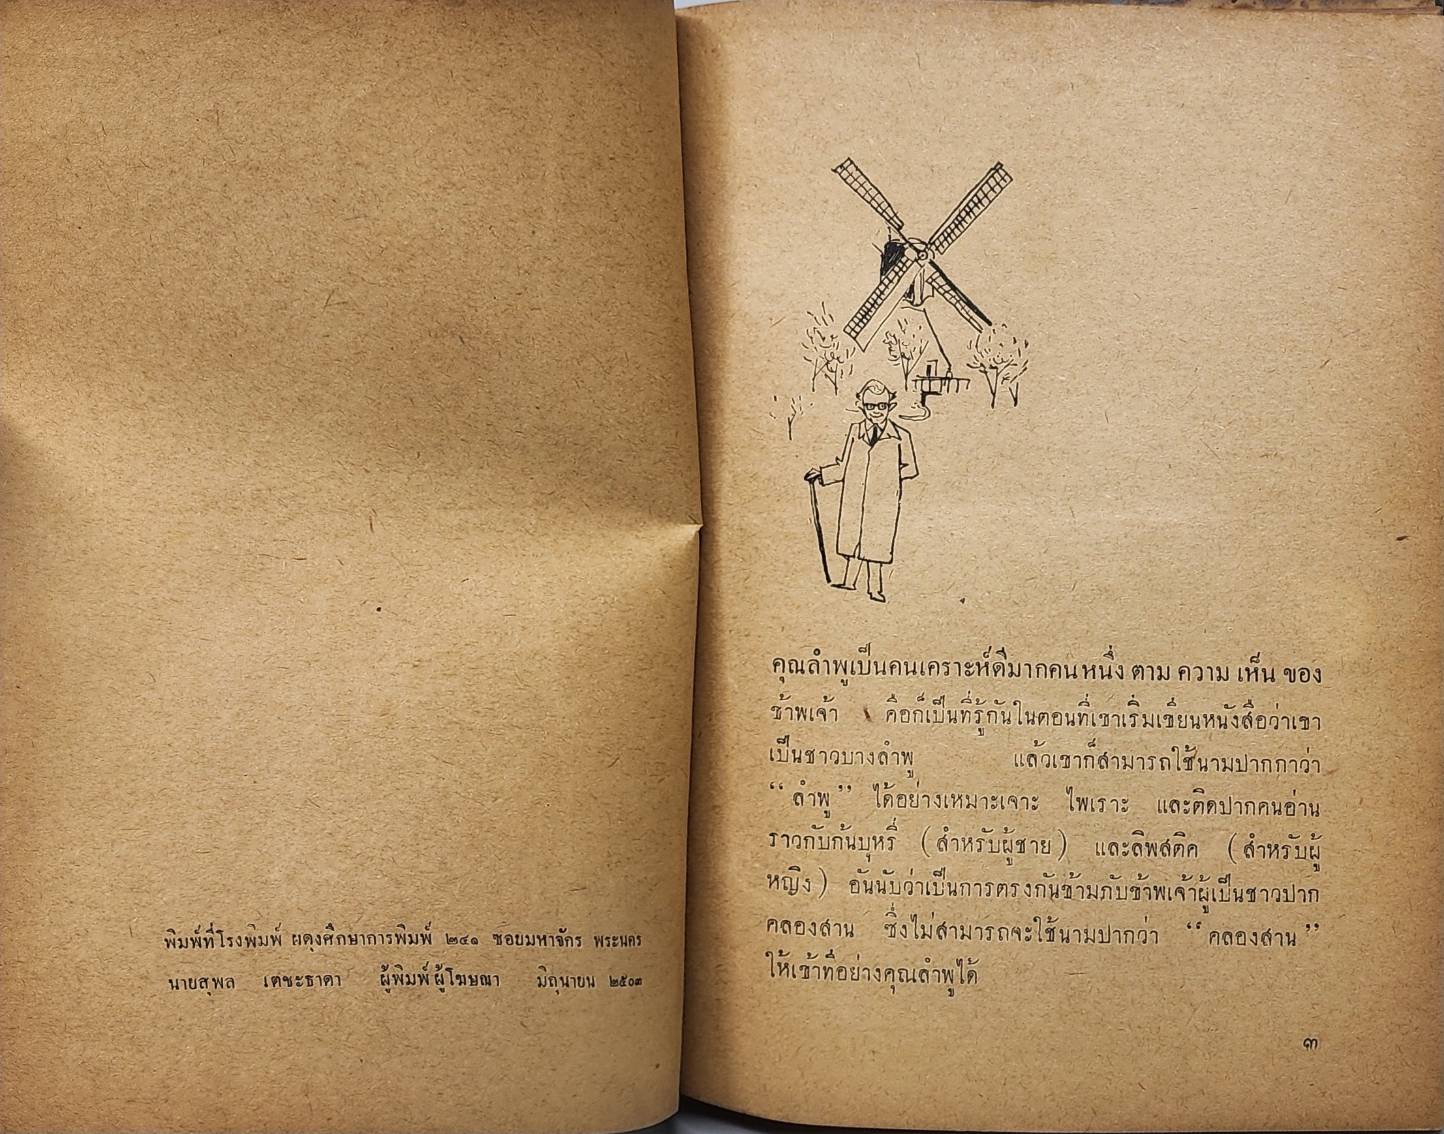 พิมพ์ที่โรงพิมพ์ ผดุงศึกษาการพิมพ์ ๒๔๑ ซอยมหาจักร พระนคร
นายสุพล เตชะธาดา ผู้พิมพ์ผู้โฆษณา มิถุนายน ๒๕๐๓
คุณลำพูเป็นคนเคราะห์ดีมากคนหนึ่ง ตาม ความ เห็น ของ
ข้าพเจ้า คือก็เป็นที่รู้กันในตอนที่เขาเริ่มเขียนหนังสือว่าเขา
เป็นชาวบางลำพู แล้วเขาก็สามารถใช้นามปากกาว่า
“ ลำพู ” ได้อย่างเหมาะเจาะ ไพเราะ และติดปากคนอ่าน
ราวกับก้นบุหรี่ (สำหรับผู้ชาย) และลิพสติค (สำหรับผู้
หญิง) อันนับว่าเป็นการตรงกันข้ามกับข้าพเจ้าผู้เป็นชาวปาก
คลองสาน ซึ่งไม่สามารถจะใช้นามปากว่า “ คลองสาน ”
ให้เข้าท่าอย่างคุณลำพูได้
๓